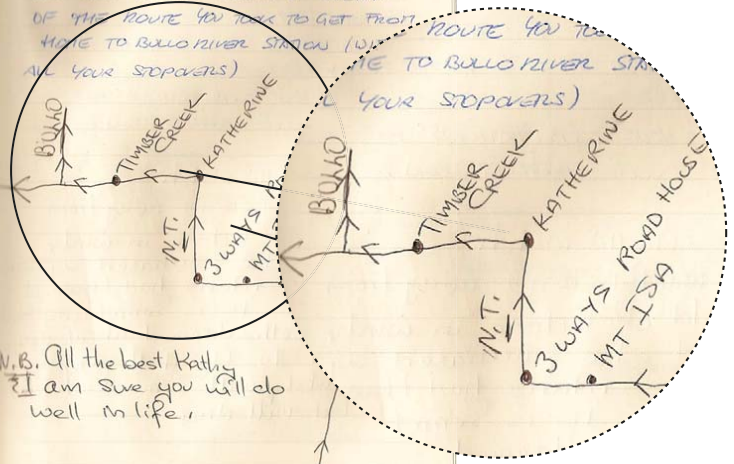 OF THE ROUTE YOU TOOK TO GET FROM
HOME TO BULLO RIVER STATION (WITH
ALL YOUR STOPOVERS)
BULLO
TIMBER
CREEK
KATHERINE
N.T.
3 WAYS
MT
N.B. All the best Kathy
& I am sure you will do
well in life.
ROUTE YOU TOO
ME TO BULLO RIVER STA
L YOUR STOPOVERS)
BULLO
TIMBER
CREEK
KATHERINE
N.T.
3 WAYS ROAD HOUSE
MT ISA